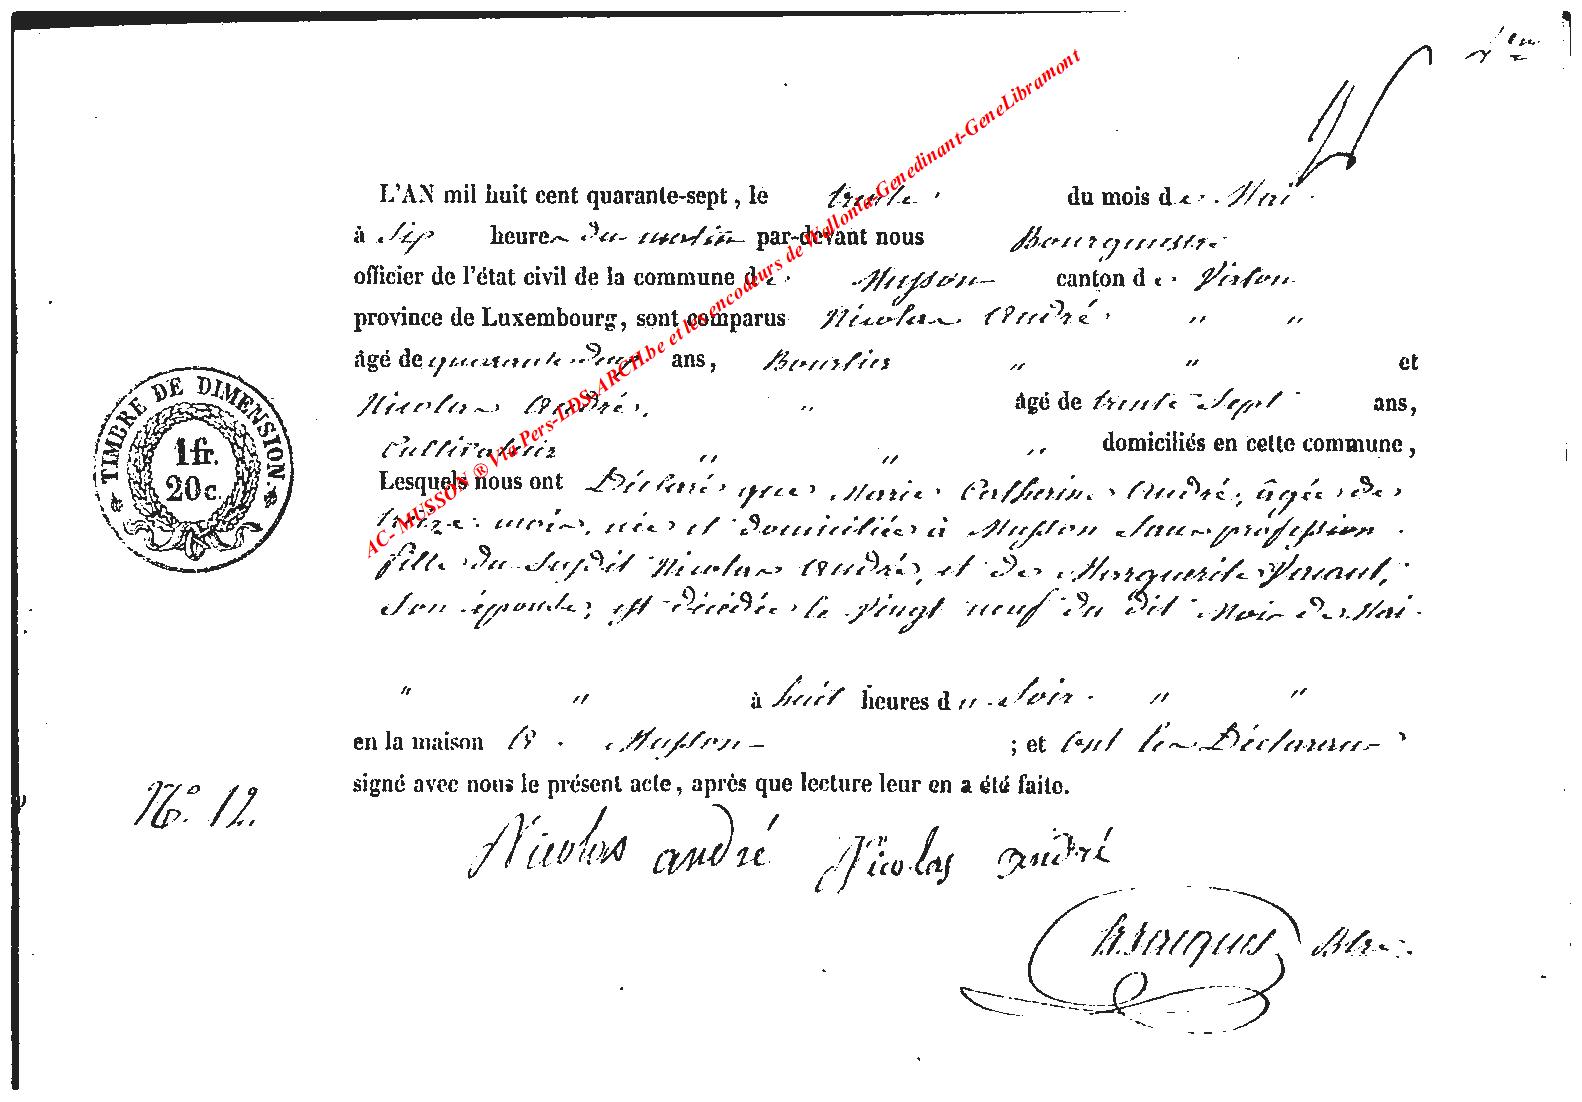 L'AN mil huit cent quarante-sept, le trente du mois de Mai
à Six heures du matin par-devant nous Bourgmestre
officier de l'état civil de la commune de Musson canton de Virton
province de Luxembourg, sont comparus Nicolas André " "
âgé de quarante deux ans, " " et
Nicolas André, " âgé de trente Sept ans,
Cultivateur " " " domiciliés en cette commune,
Lesquels nous ont Déclaré que Marie Catherine André, âgée de
treize mois, née et domiciliée à Musson Sans profession
fille du Susdit Nicolas André, et de Marguerite
Son épouse, est décédée le Vingt neuf du dit Mois de Mai
" " à huit heures du Soir " "
en la maison A Musson ; et ont les Déclarans
signé avec nous le présent acte, après que lecture leur en a été faite.
Nicolas andré Nicolas andré
N° 12.
TIMBRE DE DIMENSION
1 fr.
20 c.
AC- MUSSON ® Via Pers-LDS-ARCH.be et les encodeurs de Wallonia-Genedinant-GeneLibramont